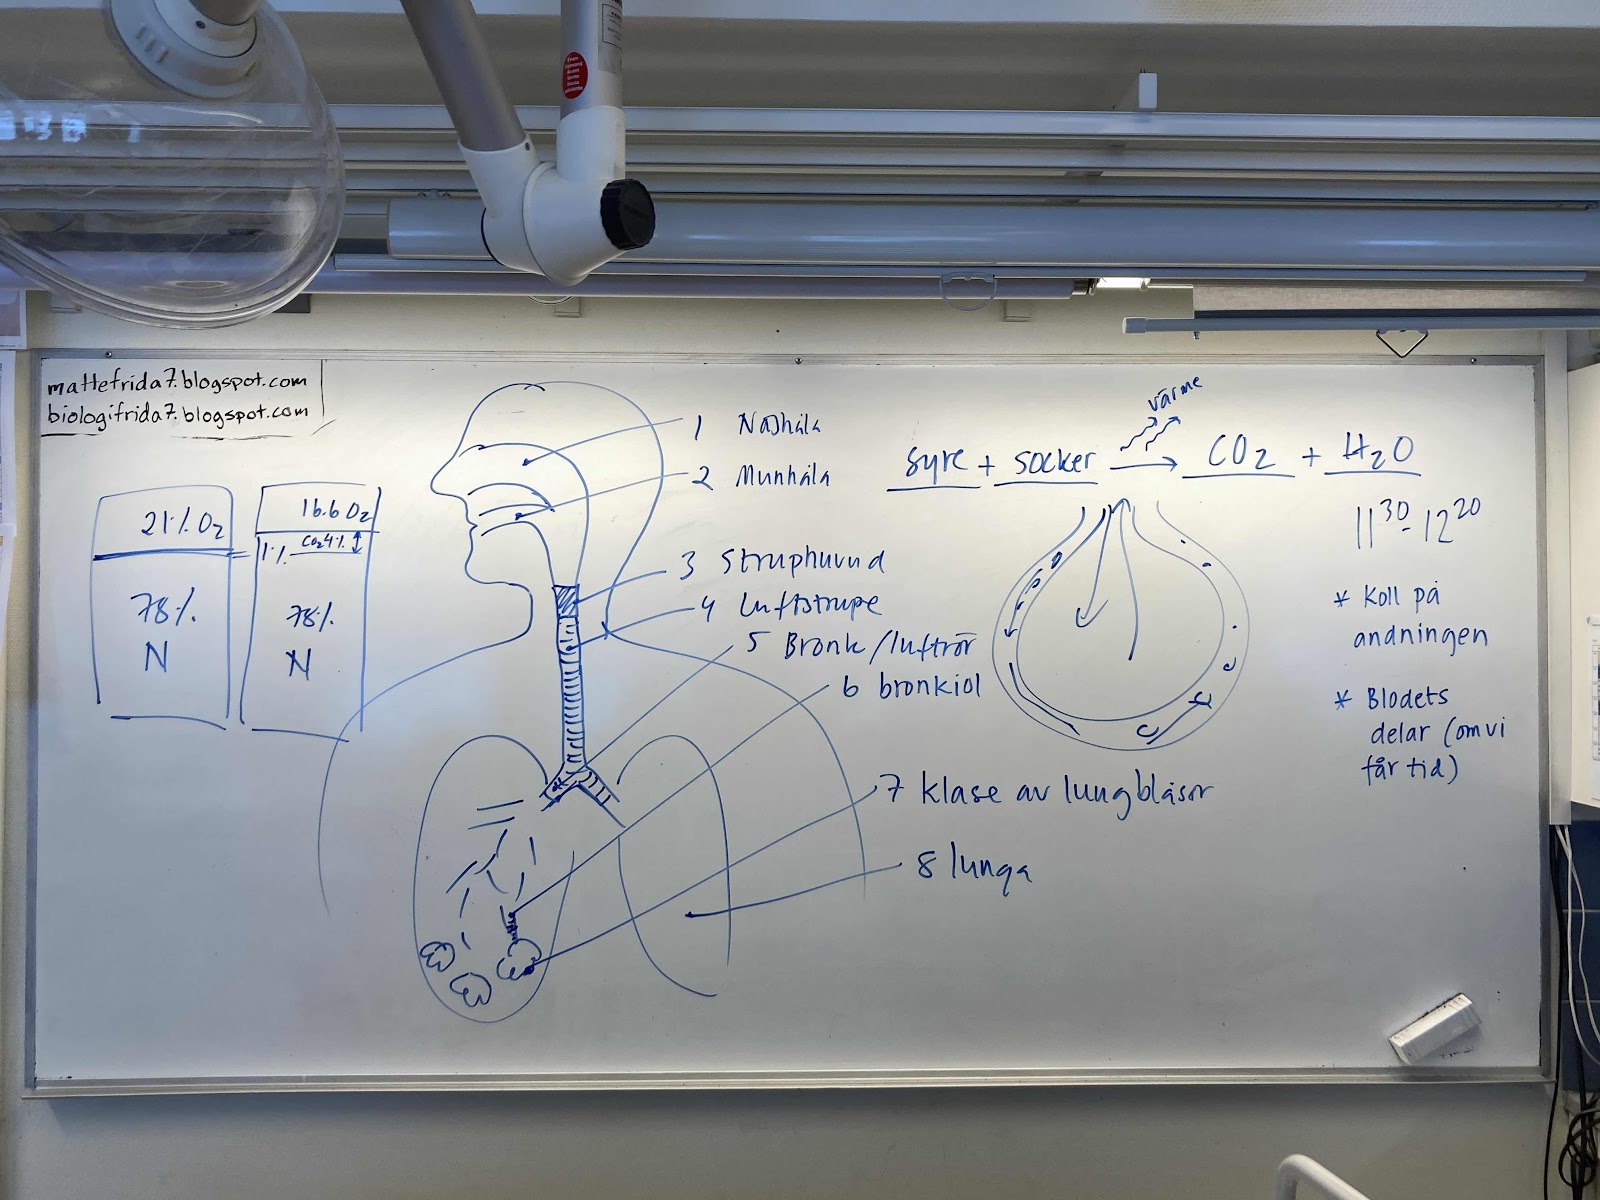 mattefrida7.blogspot.com
biologifrida7.blogspot.com
21% O2
78%
N
=
16.6 O2
1% CO2 4%
78%
N
1 Näshåla
2 Munhåla
3 Struphuvud
4 Luftstrupe
5 Bronk/luftrör
6 bronkiol
7 klase av lungblåsor
8 lunga
värme
syre + socker → CO2 + H2O
11 30 - 12 20
* Koll på
andningen
* Blodets
delar (om vi
får tid)